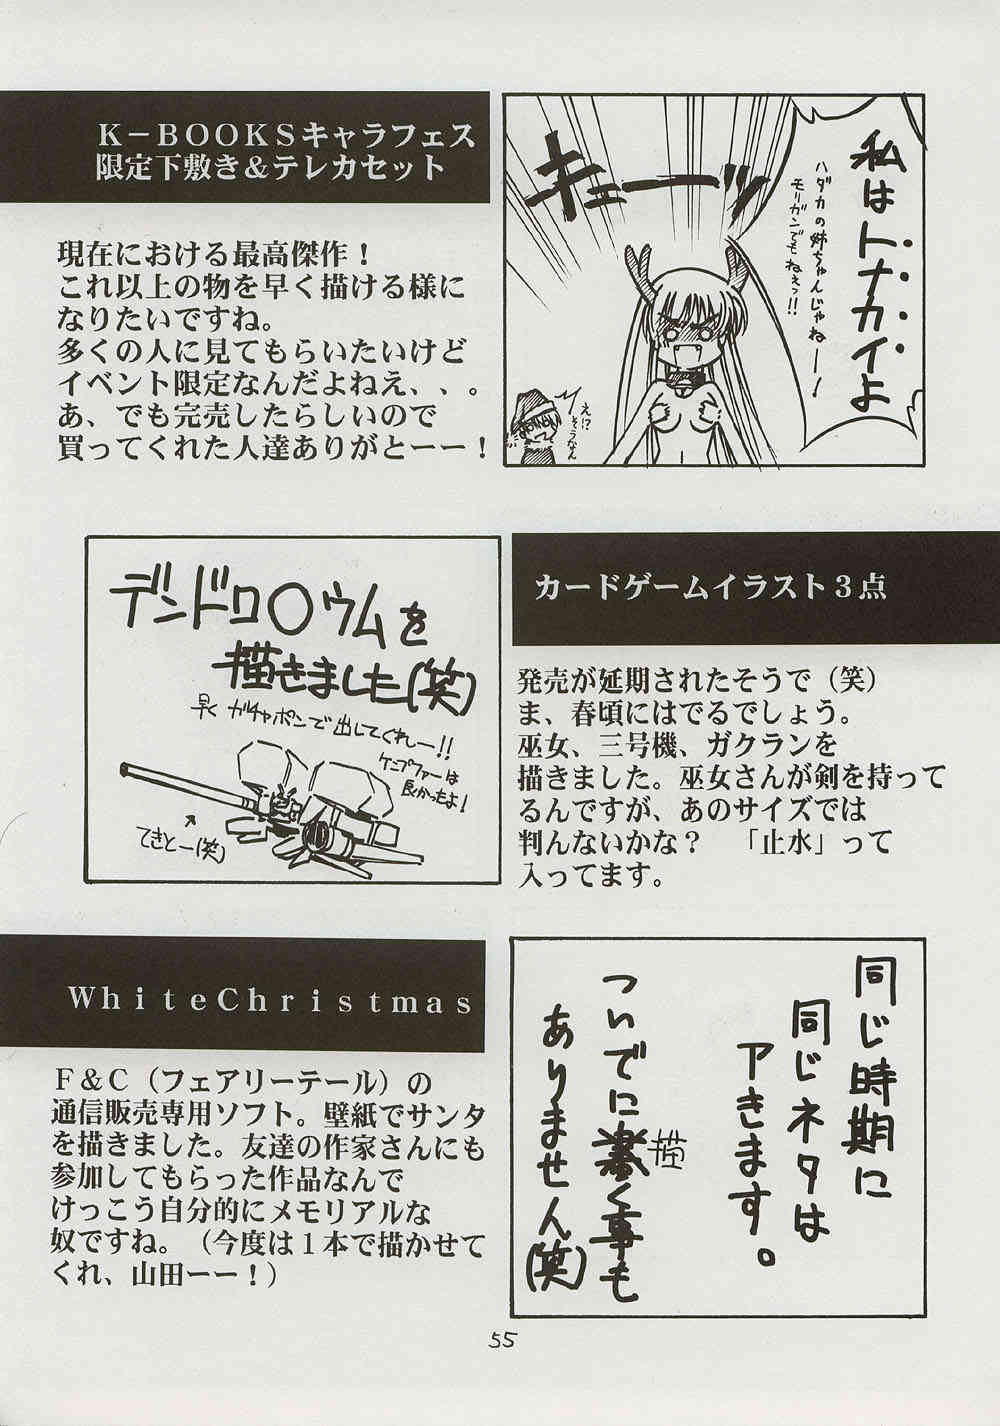 K－BOOKSキャラフェス
限定下敷き＆テレカセット
現在における最高傑作！
これ以上の物を早く描ける様に
なりたいですね。
多くの人に見てもらいたいけど
イベント限定なんだよねえ、、。
あ、でも完売したらしいので
買ってくれた人達ありがとーー！
私はトナカイよ
ハダカの姉ちゃんじゃねー！
モリガンでもねぇっ!!
キューッ
え!?
そうなん
デンドロ○ウムを
描きました(笑)
早くガチャポンで出してくれー!!
ケンプファーは
良かったよ！
てきとー(笑)
カードゲームイラスト３点
発売が延期されたそうで（笑）
ま、春頃にはでるでしょう。
巫女、三号機、ガクランを
描きました。巫女さんが剣を持って
るんですが、あのサイズでは
判んないかな？　「止水」って
入ってます。
WhiteChristmas
F＆C（フェアリーテール）の
通信販売専用ソフト。壁紙でサンタ
を描きました。友達の作家さんにも
参加してもらった作品なんで
けっこう自分的にメモリアルな
奴ですね。（今度は１本で描かせて
くれ、山田ーー！）
同じ時期に
同じネタは
アきます。
ついでに描く事も
ありません(笑)
55